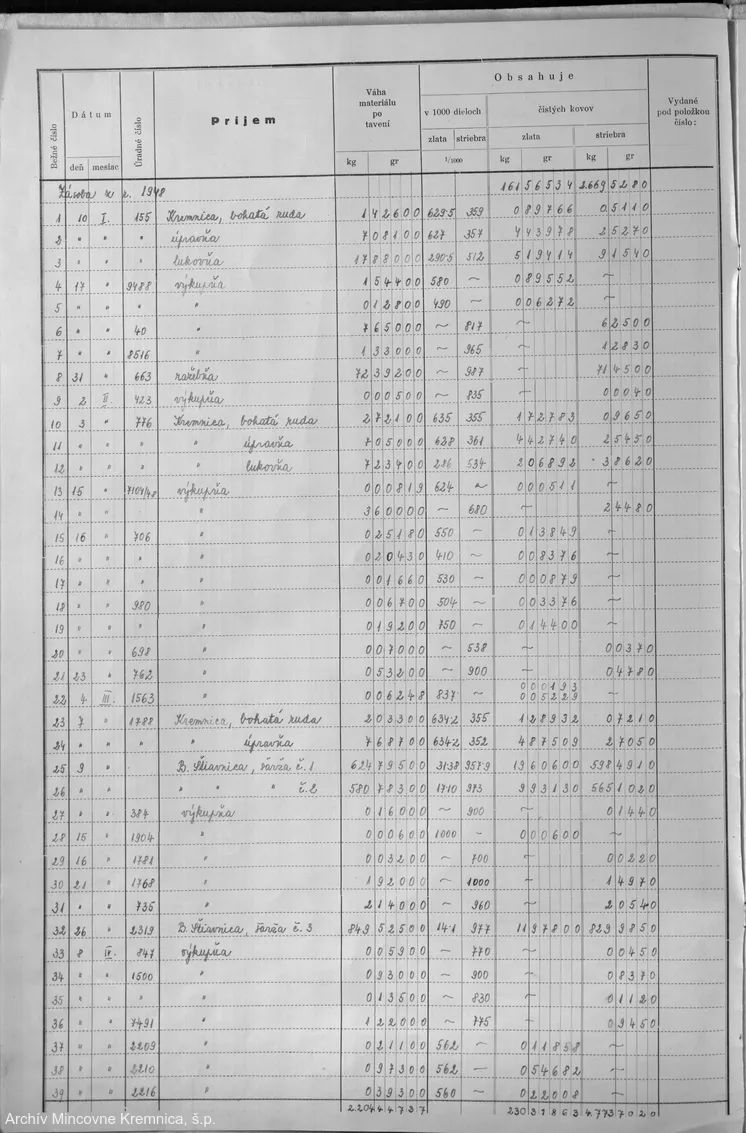 Obsahuje
Bežné číslo
Dátum
deň mesiac
Úradné číslo
Príjem
Váha materiálu po tavení
kg gr
v 1000 dieloch
zlata striebra
1/1000
čistých kovov
zlata striebra
kg gr kg gr
Vydané pod položkou číslo:
Zásoba z r. 1948 161 56534 2669 5280
1 10 I. 155 Kremnica, bohatá ruda 1 42600 629·5 359 0 89766 0 5110
2 " " " úpravňa 7 08100 627 357 4 43978 2 5270
3 " " " lukovňa 17 88000 290·5 512 5 19414 9 1540
4 17 " 9488 výkupňa 1 54400 580 ~ 0 89552 ~
5 " " " " 0 12800 490 ~ 0 06272 ~
6 " " 40 " 7 65000 ~ 817 ~ 6 2500
7 " " 8516 " 1 33000 ~ 965 ~ 1 2830
8 31 " 663 ražibňa 72 39200 ~ 987 ~ 71 4500
9 2 II. 423 výkupňa 0 00500 ~ 835 ~ 0 0040
10 3 " 776 Kremnica, bohatá ruda 2 72100 635 355 1 72783 0 9650
11 " " " " úpravňa 7 05000 628 361 4 42740 2 5450
12 " " " " lukovňa 7 23400 286 534 2 06892 3 8620
13 15 " 7104/48 výkupňa 0 00819 624 ~ 0 00511 ~
14 " " " 3 60000 ~ 680 ~ 2 4480
15 16 " 706 " 0 25180 550 ~ 0 13849 ~
16 " " " " 0 02043 0 410 ~ 0 08376 ~
17 " " " " 0 01660 530 ~ 0 00879 ~
18 " " 980 " 0 06700 504 ~ 0 03376 ~
19 " " " 0 19200 750 ~ 0 14400 ~
20 " " 698 " 0 07000 ~ 538 ~ 0 0370
21 23 " 762 " 0 53200 ~ 900 ~ 0 4780
22 4 III. 1563 " 0 06248 837 ~ 0 00193 0 05229 ~
23 7 " 1788 Kremnica, bohatá ruda 2 03300 634·2 355 1 28932 0 7210
24 " " " " úpravňa 7 68700 634·2 352 4 87509 2 7050
25 9 " B. Štiavnica, šarža č. 1 624 79500 31·38 957·9 19 60600 598 4910
26 " " " " č. 2 580 78300 17·10 973 9 93130 565 1020
27 " " 384 výkupňa 0 16000 ~ 900 ~ 0 1440
28 15 " 1904 " 0 00600 1000 - 0 00600 ~
29 16 " 1781 " 0 03200 ~ 700 ~ 0 0220
30 21 " 1768 " 1 92000 ~ 1000 ~ 1 4970
31 " " 735 " 2 14000 ~ 960 ~ 2 0540
32 26 " 2319 B. Štiavnica, šarža č. 3 849 52500 14·1 977 11 97800 829 9850
33 8 IV. 847 výkupňa 0 05900 ~ 770 ~ 0 0450
34 " " 1500 " 0 93000 ~ 900 ~ 0 8370
35 " " " " 0 13500 ~ 830 ~ 0 1120
36 " " 7491 " 1 22000 ~ 775 ~ 0 9450
37 " " 2209 " 0 21100 562 ~ 0 11858 ~
38 " " 2210 " 0 97300 562 ~ 0 54682 ~
39 " " 2216 " 0 39300 560 ~ 0 22008 ~
2204 44737 230 31863 4773 7020
Archív Mincovne Kremnica, š.p.